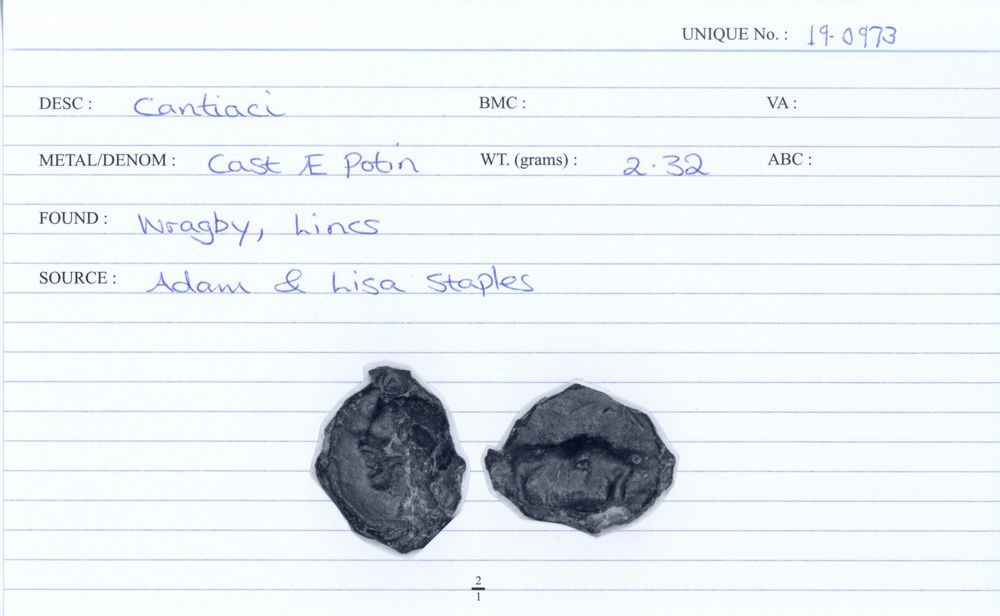 UNIQUE No. : 19-0973
DESC : Cantiaci BMC : VA :
METAL/DENOM : Cast Æ Potin WT. (grams) : 2.32 ABC :
FOUND : Wragby, Lincs
SOURCE : Adam & Lisa Staples
2
1